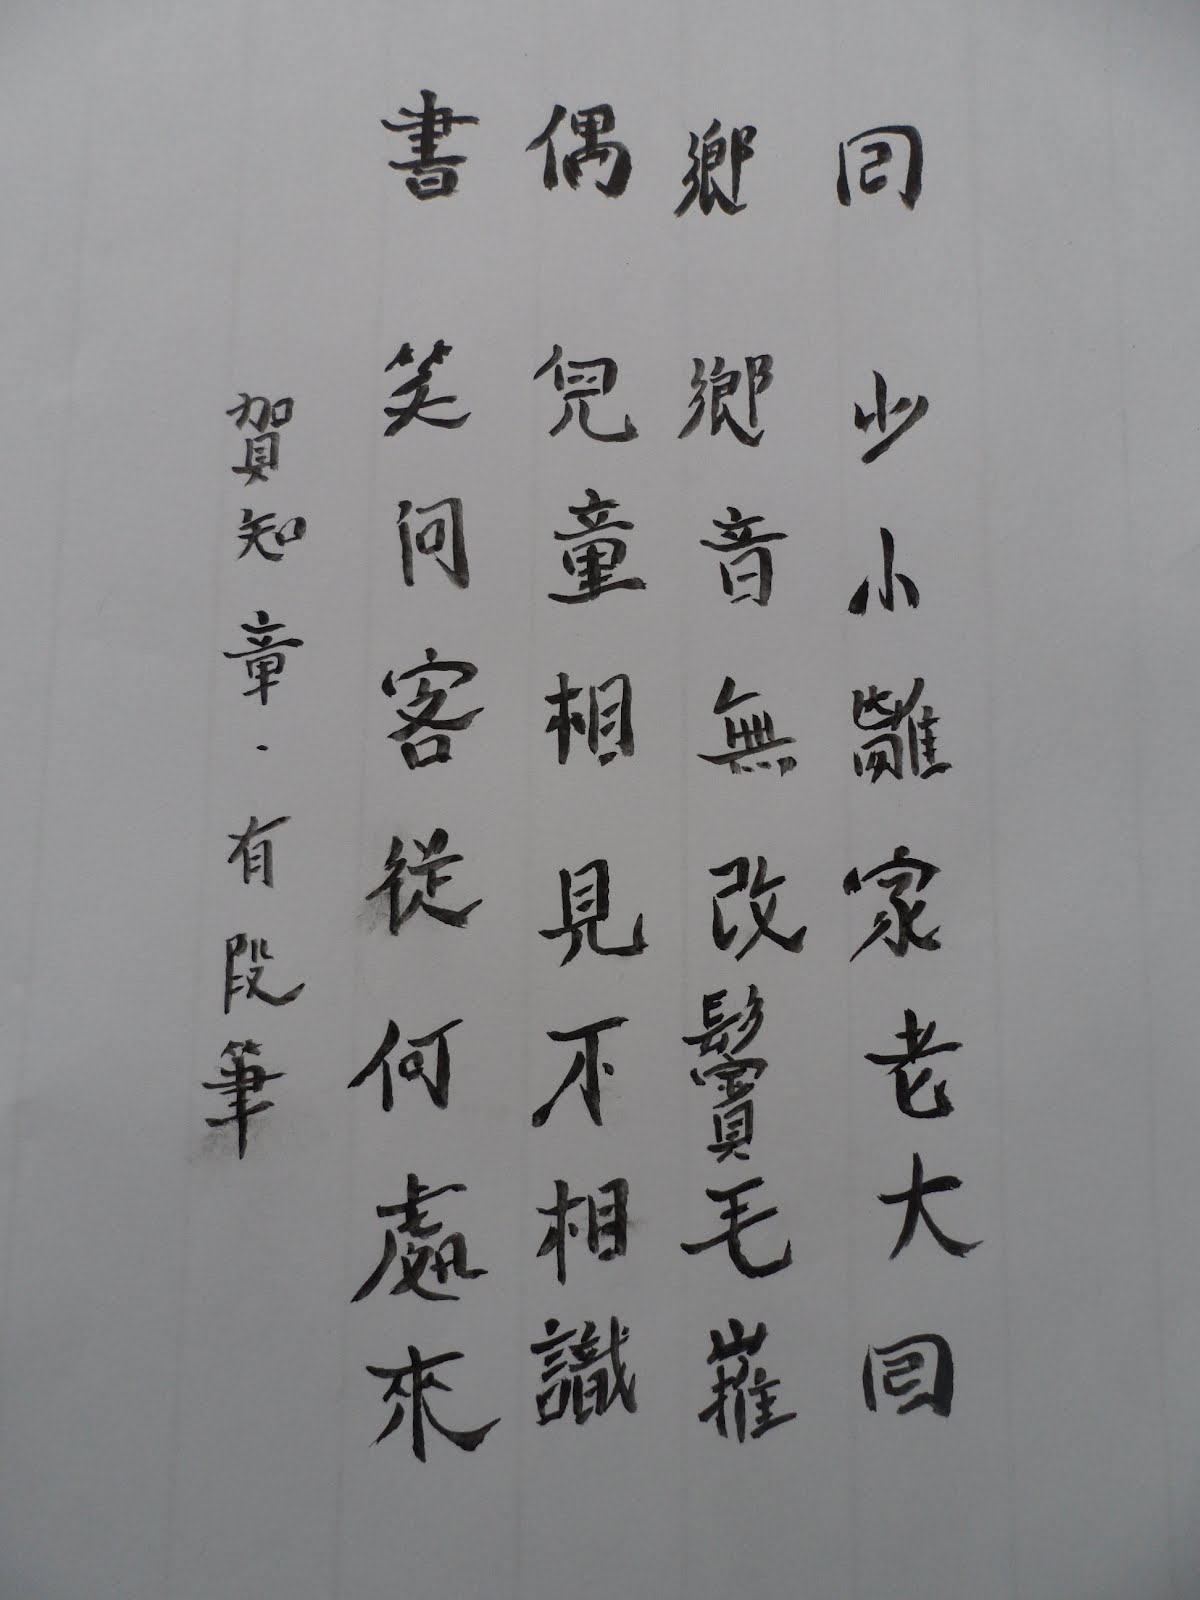 回鄉偶書
少小離家老大回
鄉音無改鬢毛摧
兒童相見不相識
笑問客從何處來
賀知章．有段筆